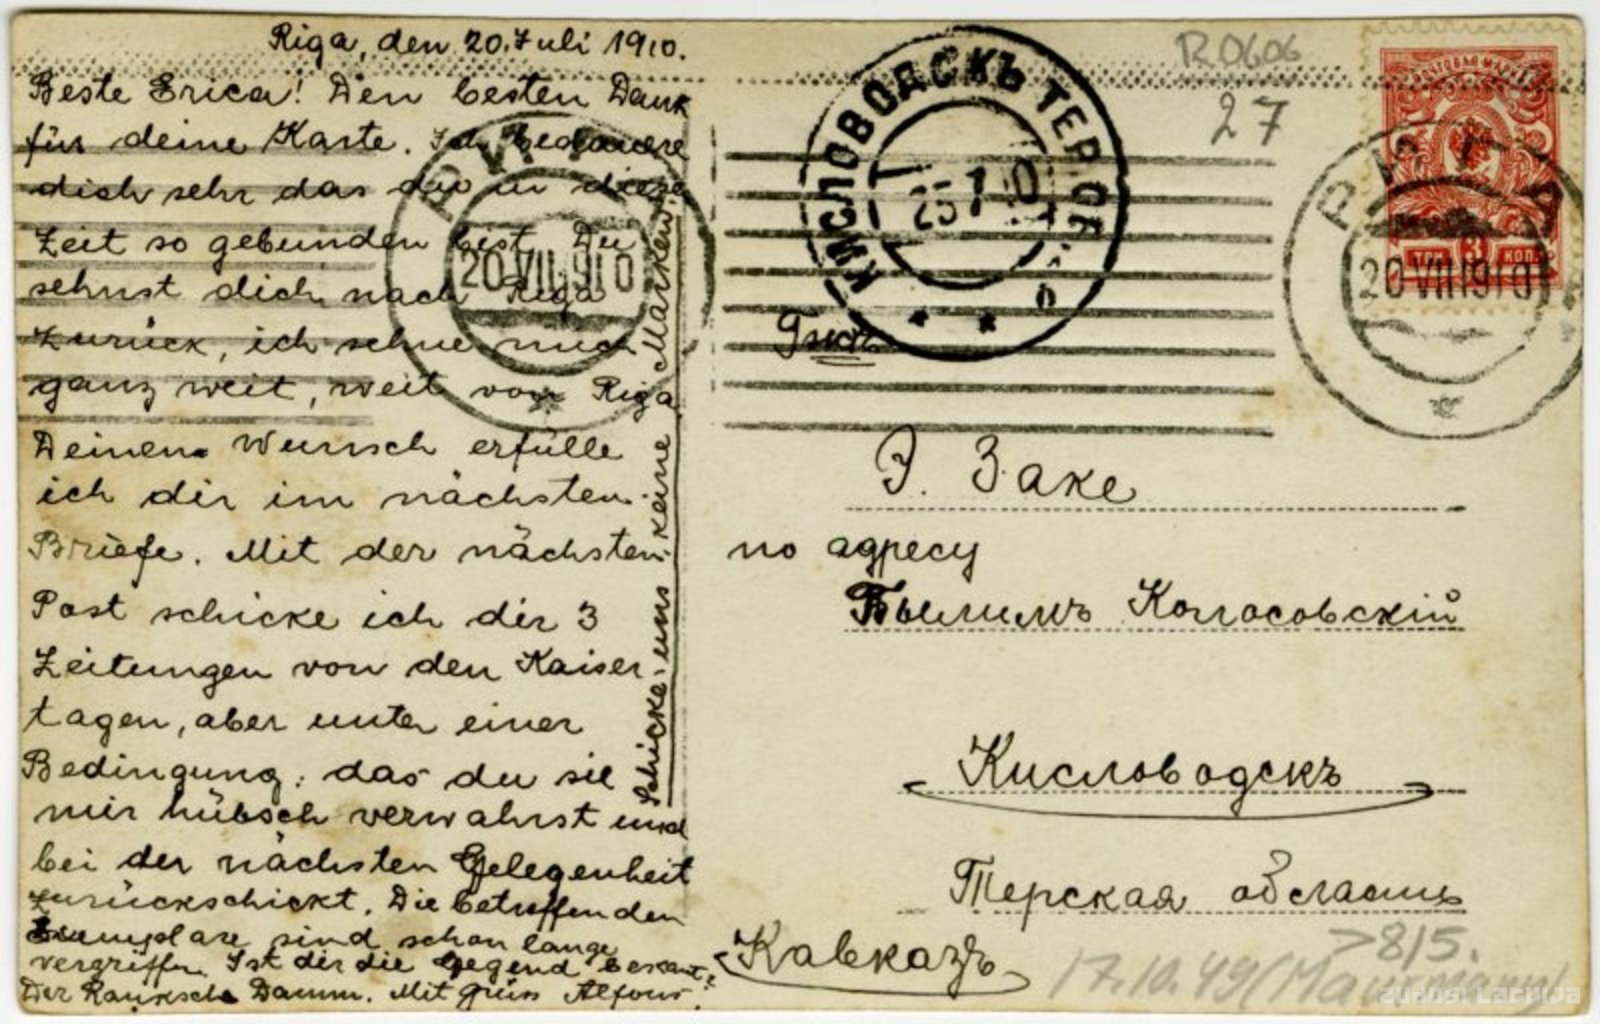 Riga, den 20. Juli 1910.
Beste Erica! Den besten Dank
für deine Karte. Ich bedauere
dich sehr das du in diese
Zeit so gebunden bist. Du
sehnst dich nach Riga
zurück, ich sehne mich
ganz weit, weit von Riga.
Deinen Wunsch erfülle
ich dir im nächsten
Briefe. Mit der nächsten
Post schicke ich dir 3
Zeitungen von den Kaiser-
tagen, aber unter einer
Bedingung: das du sie
mir hübsch verwahrst und
bei der nächsten Gelegenheit
zurückschickt. Die betreffenden
Exemplare sind schon lange
vergriffen. Ist dir die Gegend bekant?
Der Ranksche Damm. Mit Gruss Alfons.
Schicke uns keine Marken.
РИГА
20 VII 1910
КИСЛОВОДСКЪ ТЕРСК. О
25 7 10
R0606
27
ПОЧТОВАЯ МАРКА
ТРИ 3 КОП.
РИГА
20 VII 1910
Э. Заке
по адресу
Былимъ Колосовскій
Кисловодскъ
Терская область
Кавказъ
>8/5.
17.10.49
Zudusi Latvija